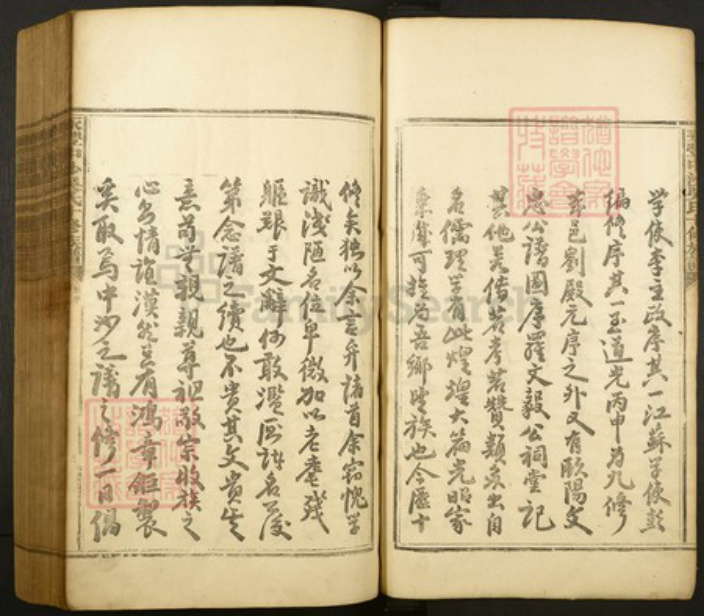 學使李主政序其一江蘇學使彭
編修序其一至道光丙申為九修
本邑劉殿元序之外又有歐陽文
忠公譜圖序羅文毅公祠堂記
其他若傳若考若贊類多出自
名儒理學有此煌煌大篇光昭家
乘潢可於為吾鄉望族也今歷十
修矣獨以余言弁諸首余竊愧學
識淺陋名位卑微加以老耄殘
軀艱于文辭何敢濫廁諸名公後
第念譜之續也不貴其文貴其
意苟無親親尊祖敬宗收族之
心與情誼漠然雖有鴻章鉅製
奚取為中沙之譜之修一日倡
FamilySearch